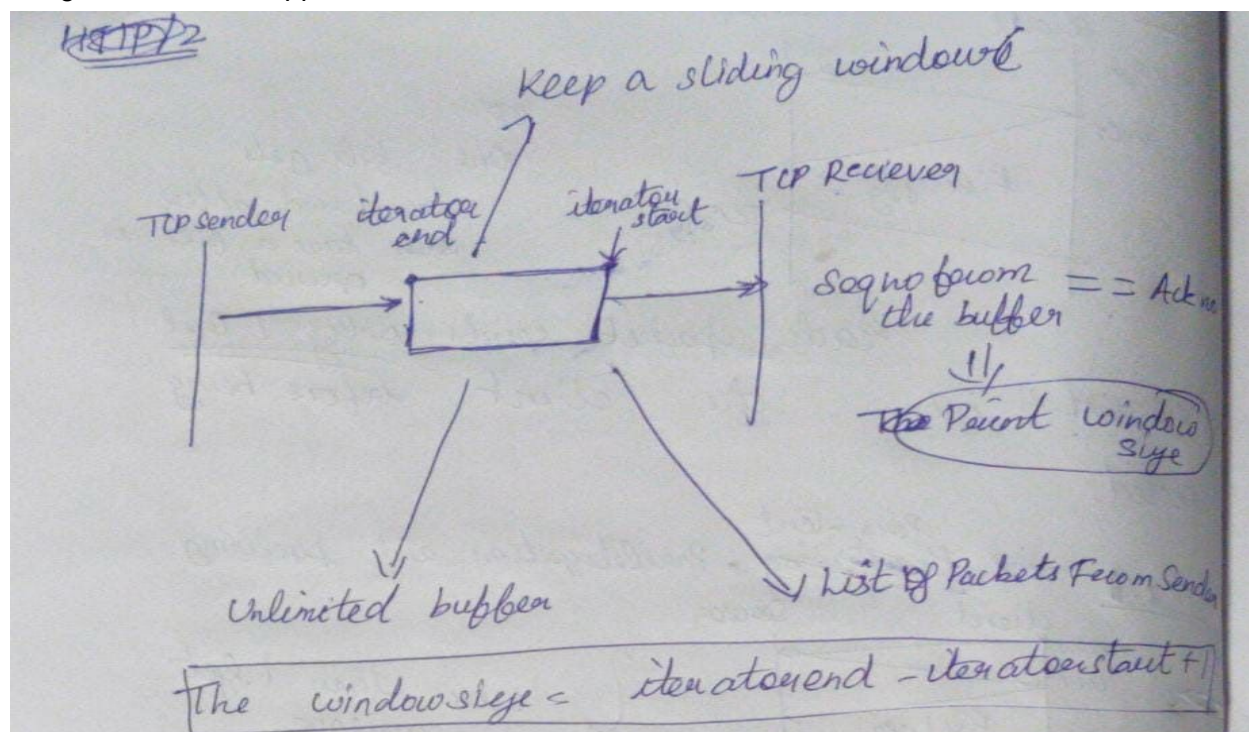 HTTP/2
Keep a sliding window
TCP sender
iterator
end
iterator
start
TCP Reciever
Seq no from
the buffer
== Ack no
The Print window
size
Unlimited buffer
List of Packets From Sender
The window size = iterator end - iterator start + 1